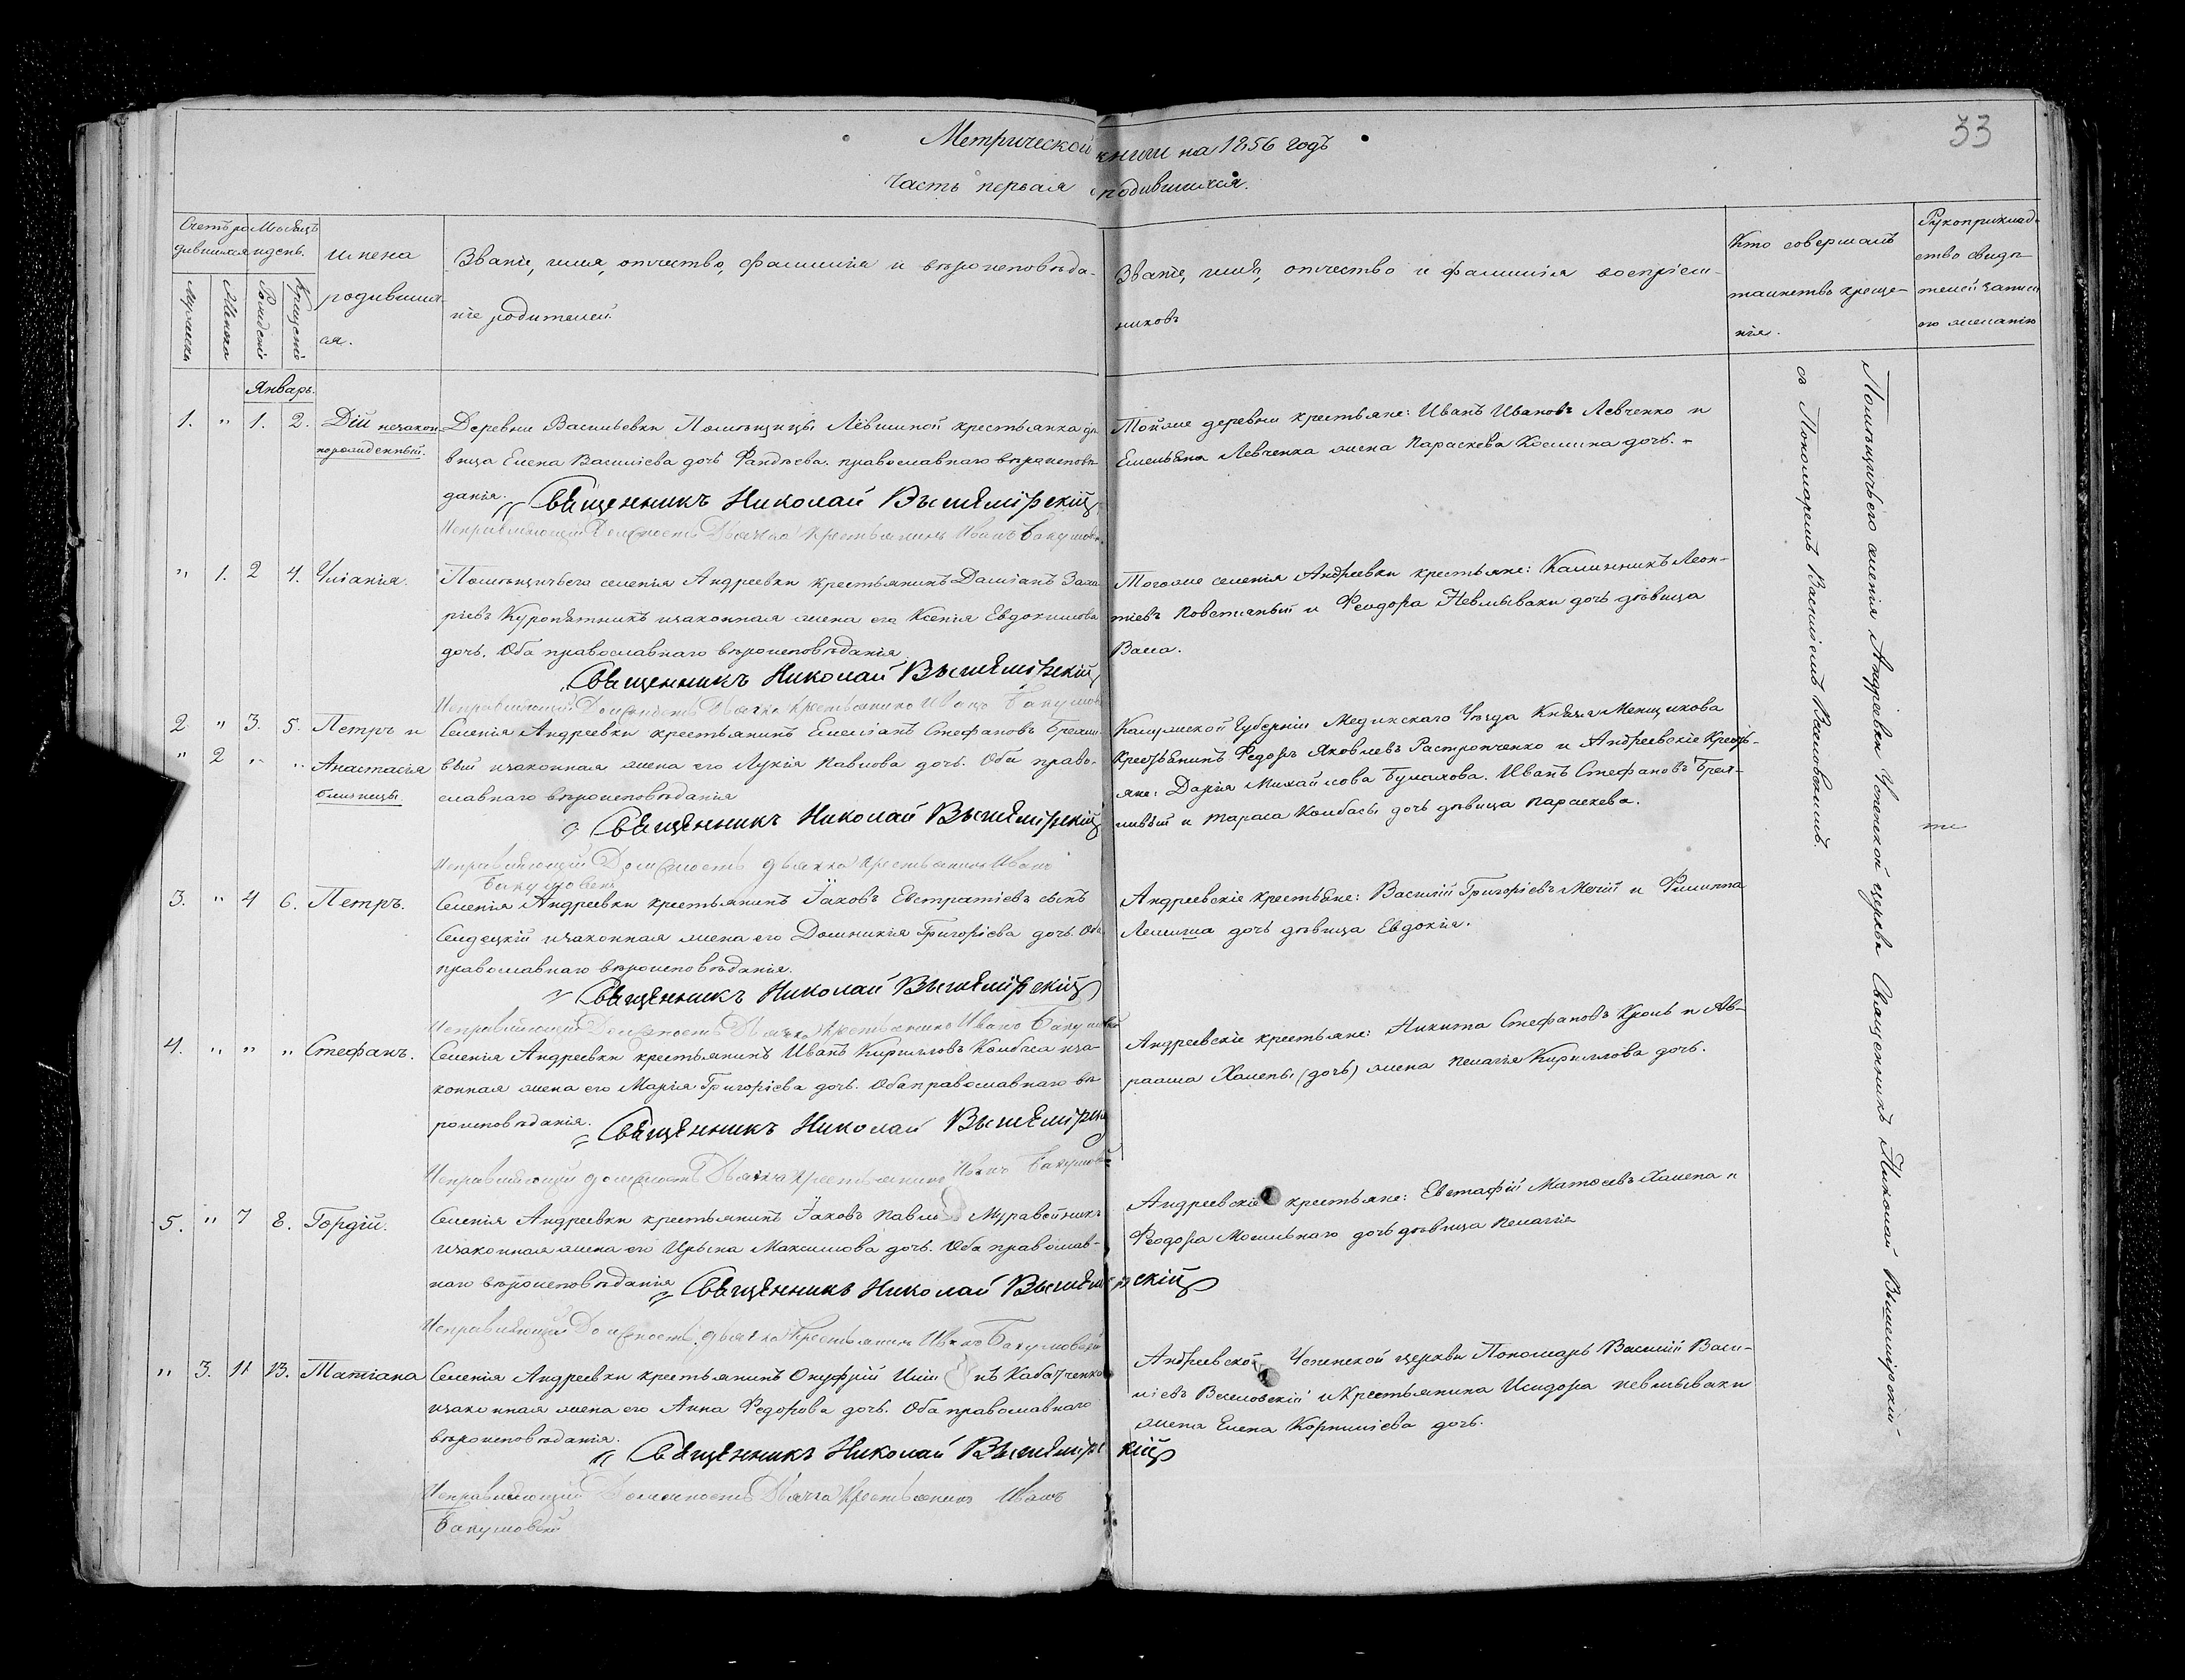 33
Метрической книги на 1856 годъ
Часть первая о родившихся.
Счетъ ро- Мѣсяцъ
дившихся и день.
Мужеска
Женска
Рожденіе
Крещеніе
имена
родивших-
ся.
Званіе, имя, отчество, фамилія и вѣроисповѣда-
ніе родителей.
Званіе, имя, отчество и фамилія воспріем-
никовъ
Кто совершалъ
таинство креще-
нія.
Рукоприклад-
ство свидѣ-
телей записи
по желанію
Январь.
1. " 1. 2. Дій незакон-
норожденный.
Деревни Васильевки Помѣщицы Лёвшиной крестьянка дѣ-
вица Елена Василіева дочь Фандѣева. православнаго вѣроисповѣ-
данія.
Священникъ Николай Вышемірскій
Исправляющій Должность Дьячка крестьянинъ Иванъ
Тойже деревни крестьяне: Иванъ Ивановъ Левченко и
Емельяна Левченка жена Параскева Космина дочь.
" 1. 2 4. Уліанія.
Помѣщичьего селенія Андреевки крестьянинъ Даміанъ Заха-
ріевъ Куропятникъ изаконная жена его Ксенія Евдокимова
дочь. Оба православнаго вѣроисповѣданія.
Священникъ Николай Вышемірскій
Исправляющій Должность Дьячка крестьянинъ Иванъ
Тогоже селенія Андреевки крестьяне: Калинникъ Леон-
тіевъ Повстяный и Феодора Невмываки дочь дѣвица
Васса.
2 " 3. 5. Петръ и
" 2 " " Анастасія
близнецы
Селенія Андреевки крестьянинъ Емеліанъ Стефановъ
изаконная жена его Лукія Павлова дочь. Оба право-
славнаго вѣроисповѣданія
Священникъ Николай Вышемірскій
Исправляющій Должность дьячка крестьянинъ Иванъ
Калужской Губерніи Медынскаго Уѣзда Князя Менщикова
Крестьянинъ Федоръ Яковлевъ Растропченко и Андреевскіе Кресть-
яне: Дарія Михайлова Булахова. Иванъ Стефановъ
и Тараса Колбасы дочь дѣвица Параскева.
3. " 4 6. Петръ.
Селенія Андреевки крестьянинъ Іаковъ Евстратіевъ сынъ
изаконная жена его Домникія Григоріева дочь. Оба
православнаго вѣроисповѣданія.
Священникъ Николай Вышемірскій
Исправляющій Должность Дьячка крестьянинъ Иванъ
Андреевскіе крестьяне: Василій Григоріевъ и Филиппа
Лемиша дочь дѣвица Евдокія.
4. " " " Стефанъ.
Селенія Андреевки крестьянинъ Иванъ Кирилловъ Колбаса иза-
конная жена его Марія Григоріева дочь. Оба православнаго вѣ-
роисповѣданія.
Священникъ Николай
Исправляющій должность Дьячка крестьянинъ Иванъ
Андреевскіе крестьяне: Никита Стефановъ Кроль и Ав-
раама Халепы (дочь) жена Пелагія Кириллова дочь.
5. " 7 8. Гордій.
Селенія Андреевки крестьянинъ Іаковъ Муравейникъ
изаконная жена его Ирына Максимова дочь. Оба православ-
наго вѣроисповѣданія
Священникъ Николай Вышемірскій
Исправляющій Должность дьячка Крестьянинъ Иванъ
Андреевскіе крестьяне: Евстафій Матѳеевъ Халепа и
Феодора Мошьнаго дочь дѣвица Пелагія
" 3. 11 13. Татіана
Селенія Андреевки крестьянинъ Онуфрій Кабатченко
изаконная жена его Анна Федорова дочь. Оба православнаго
вѣроисповѣданія.
Священникъ Николай Вышемірскій
Исправляющій Должность Дьячка Крестьянинъ Иванъ
Андреевской Успенской церкви Пономарь Василій Васи-
ліевъ Веселовскій и Крестьянина Исидора Невмываки
жена Елена Корниліева дочь.
Помѣщичьего селенія Андреевки Успенской церкви Священникъ Николай Вышемірскій
съ Пономаремъ Василіемъ Веселовскимъ.